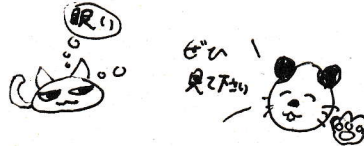 眠い
ぜひ
見て下さい